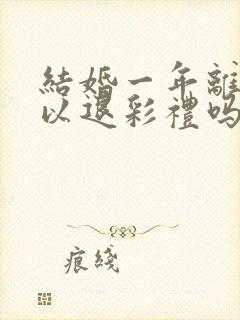 結婚一年離
以退彩禮嗎
痕綫